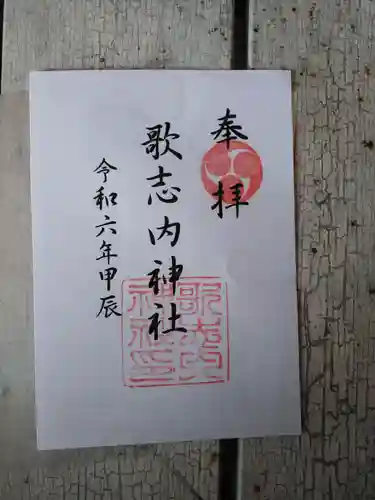 奉拝
歌志内神社
令和六年甲辰
歌志内神社印